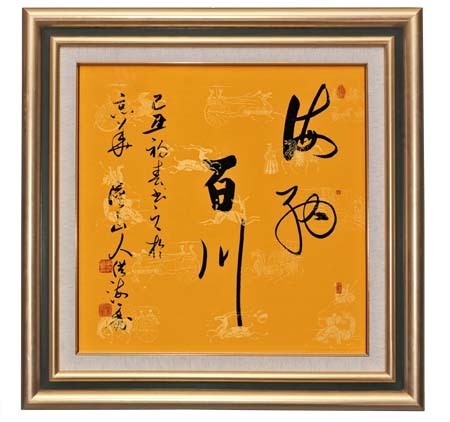 海纳
百川
己丑初春书于
京华 山人